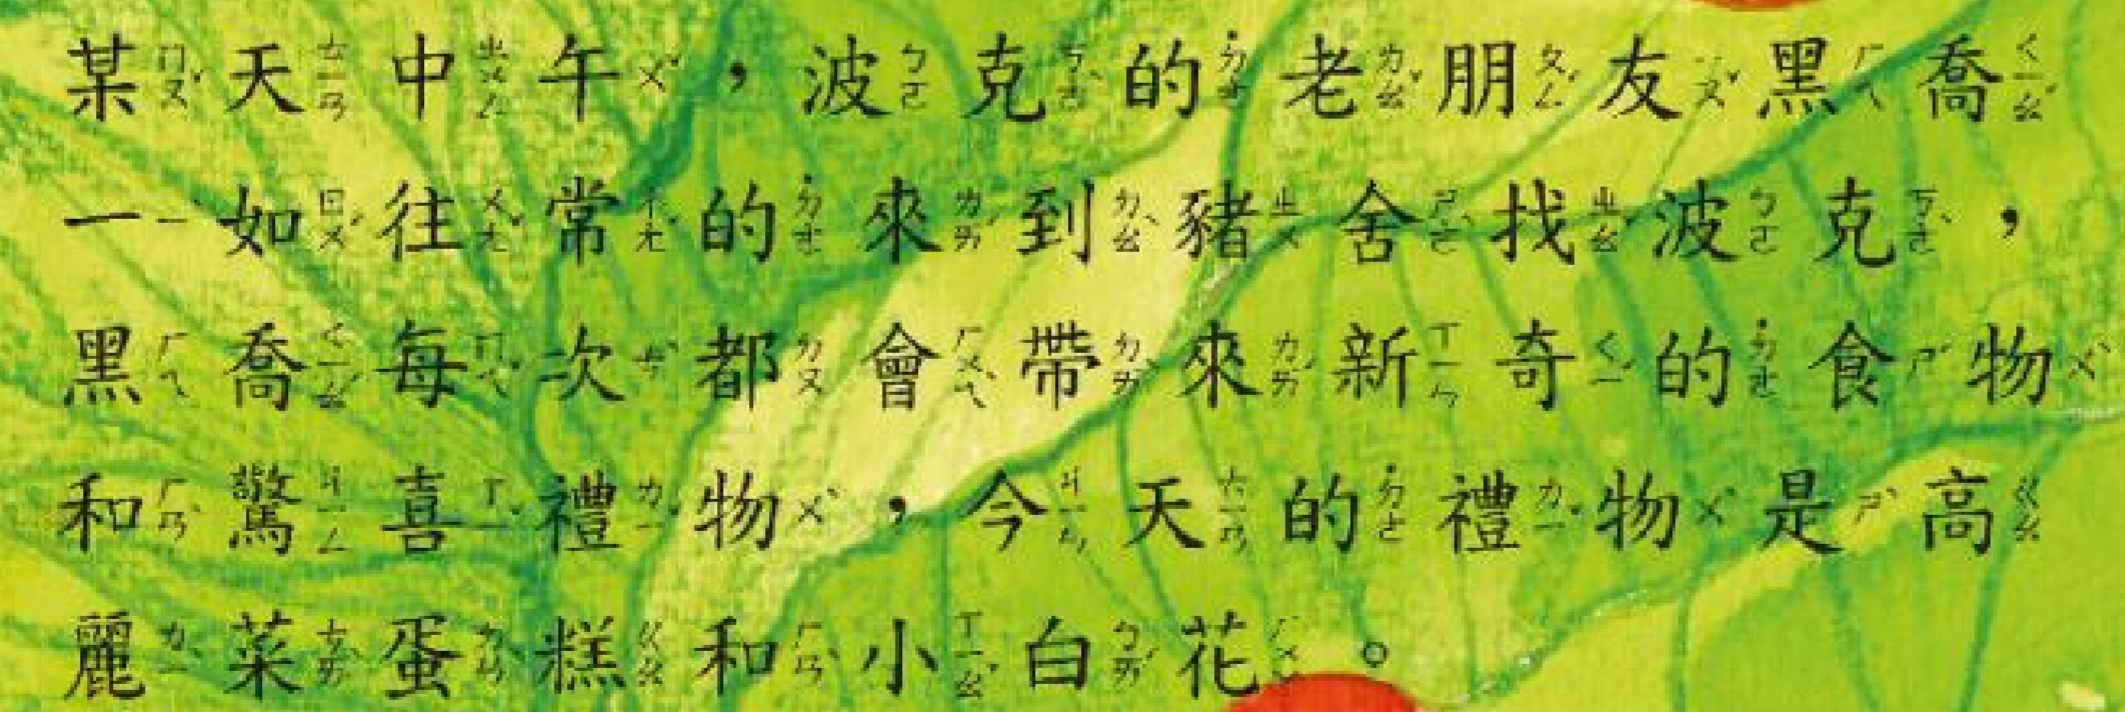 某天中午，波克的老朋友黑喬
一如往常的來到豬舍找波克，
黑喬每次都會帶來新奇的食物
和驚喜禮物，今天的禮物是高
麗菜蛋糕和小白花。